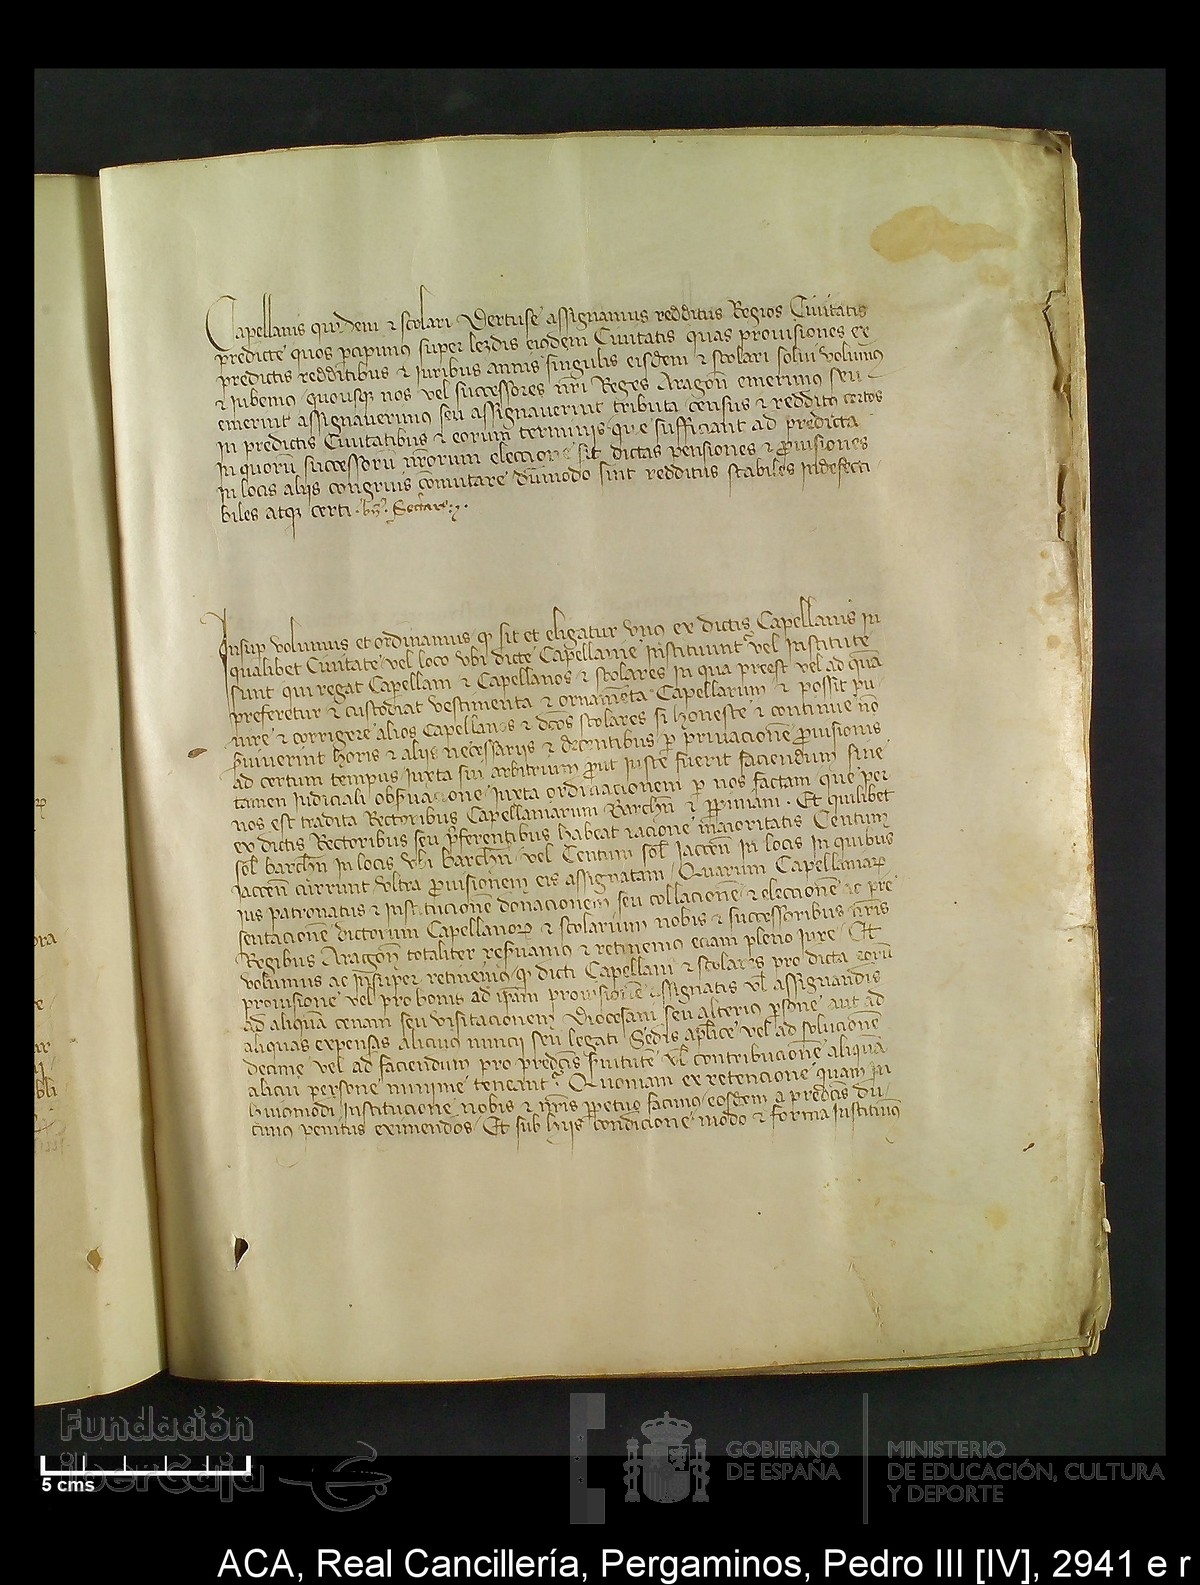 Capellanis quidem ⁊ scolari Dertuse assignamus redditus Regios Ciuitatis
predicte quos p̱cipimus super lezdis eiusdem Ciuitatis quas prouisiones ex
predictis redditibus ⁊ Iuribus annis singulis eisdem ⁊ scolari solui volumus
⁊ Iubemus quousq; nos vel successores nr̄i Reges Aragon̄ emerimus seu
emerint assignauerimus seu assignauerint tributa census ⁊ redditus certos
in predictis Ciuitatibus ⁊ eorum terminis que sufficiant ad predicta
In quorū successorū nr̄orum eleccione sit dictas pensiones ⁊ p̱uisiones
in locis alijs congruis comutare dūmodo sint redditus stabiles indefecti
biles atq; certi.
Insup̱ volumus et ordinamus q̱ sit et eligatur vnus ex dictis Capellanis in
qualibet Ciuitate vel loco vbi dicte Capellanie Instituunt̉ vel Institute
sunt qui regat Capellam ⁊ Capellanos ⁊ scolares in qua preest vel ad quā
preferetur ⁊ custodiat vestimenta ⁊ ornam̄eta Capellarum ⁊ possit pu
nire ⁊ corrigere alios Capellanos ⁊ dc̄os scolares si honeste ⁊ continue nō
s̱uiuerint horis ⁊ alijs necessarijs ⁊ decentibus p̱ priuacionē p̱uisionis
ad certum tempus iuxta sui arbitrium p̱ut iuste fuerit faciendum sine
tamen iudiciali obs̱uacione iuxta ordinacionem p̱ nos factam que per
nos est tradita Rectoribus Capellaniarum Barchn̄ ⁊ p̱piniani. Et quilibet
ex dictis Rectoribus seu p̄ferentibus habeat racione maioritatis Centum
sol̄ barchn̄ in locis vbi barchn̄ vel Centum sol̄ Iaccen̄ in locis in quibus
iaccen̄ currunt vltra p̱uisionem eis assignatam Quarum Capellaniarꝝ
ius patronatus ⁊ institucionē donacionem seu collacionē ⁊ eleccionē ac pre
sentacionē dictorum Capellanorꝝ ⁊ scolarium nobis ⁊ successoribus nr̄is
Regibus Aragon̄ totaliter res̱uamus ⁊ retinemus eciam pleno iure Et
volumus ac insuper retinemus q̱ dicti Capellani ⁊ scolares pro dicta eorū
prouisione vel pro bonis ad ip̄am prouisionē assignatis vl̄ assignandis
ad aliquā cenam seu visitacionem Diocesani seu alterius p̱sone aut ad
aliquas expensas alicuius nuncii seu legati Sedis ap̄lice vel ad solucionē
decime vel ad faciendum pro predc̄is s̱uitute vl̄ contribucionē aliquā
alicui persone minime teneant̉ Quoniam ex retencione quam in
huiusmodi institucione nobis ⁊ nr̄is p̱petuo facimus eosdem a predc̄is du
cimus penitus eximendos Et sub hijs condicione modo ⁊ forma instituim̉